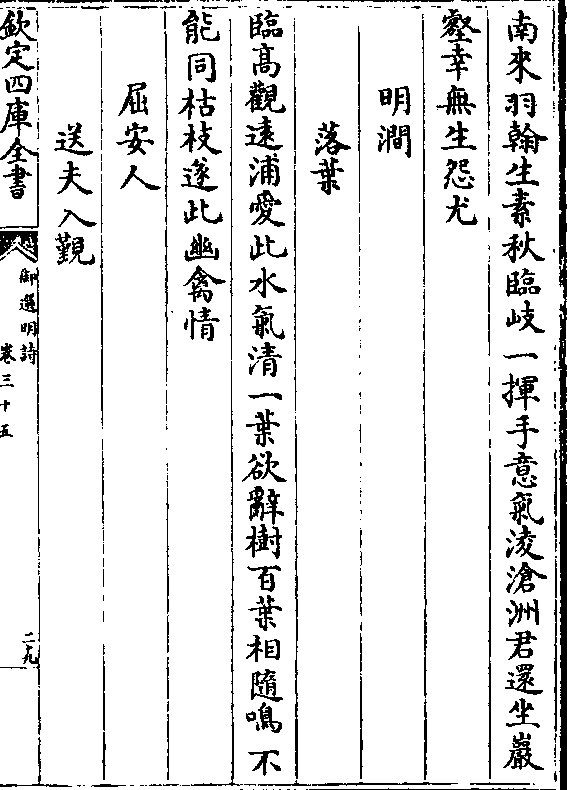 南來羽翰生素秋臨岐一揮手意氣淩滄洲君還坐巖
壑幸無生怨尤
明澗
落葉
臨髙觀遠浦愛此水氣清一葉欲辭樹百葉相隨鳴不
能同枯枝遂此幽禽情
屈安人
送夫入覲
欽定四庫全書
御選明詩
卷三十五
二九